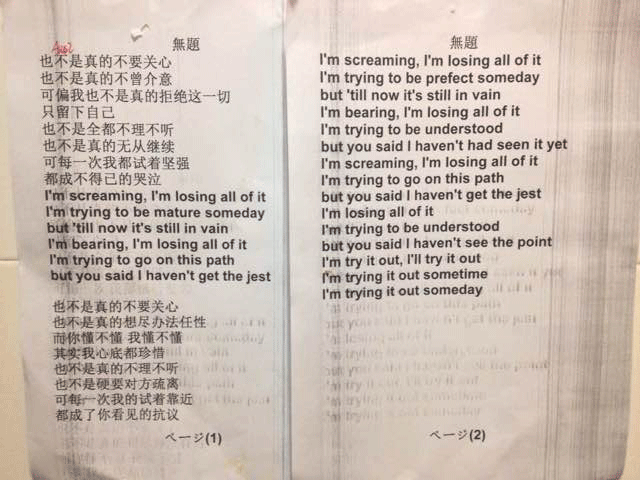 無題
也不是真的不要关心
也不是真的不曾介意
可偏我也不是真的拒绝这一切
只留下自己
也不是全都不理不听
也不是真的无从继续
可每一次我都试着坚强
都成不得已的哭泣
I'm screaming, I'm losing all of it
I'm trying to be mature someday
but 'till now it's still in vain
I'm bearing, I'm losing all of it
I'm trying to go on this path
but you said I haven't get the jest
也不是真的不要关心
也不是真的想尽办法任性
而你懂不懂 我懂不懂
其实我心底都珍惜
也不是真的不理不听
也不是硬要对方疏离
可每一次我的试着靠近
都成了你看见的抗议
ページ(1)
無題
I'm screaming, I'm losing all of it
I'm trying to be prefect someday
but 'till now it's still in vain
I'm bearing, I'm losing all of it
I'm trying to be understood
but you said I haven't had seen it yet
I'm screaming, I'm losing all of it
I'm trying to go on this path
but you said I haven't get the jest
I'm losing all of it
I'm trying to be understood
but you said I haven't see the point
I'm try it out, I'll try it out
I'm trying it out sometime
I'm trying it out someday
ページ(2)